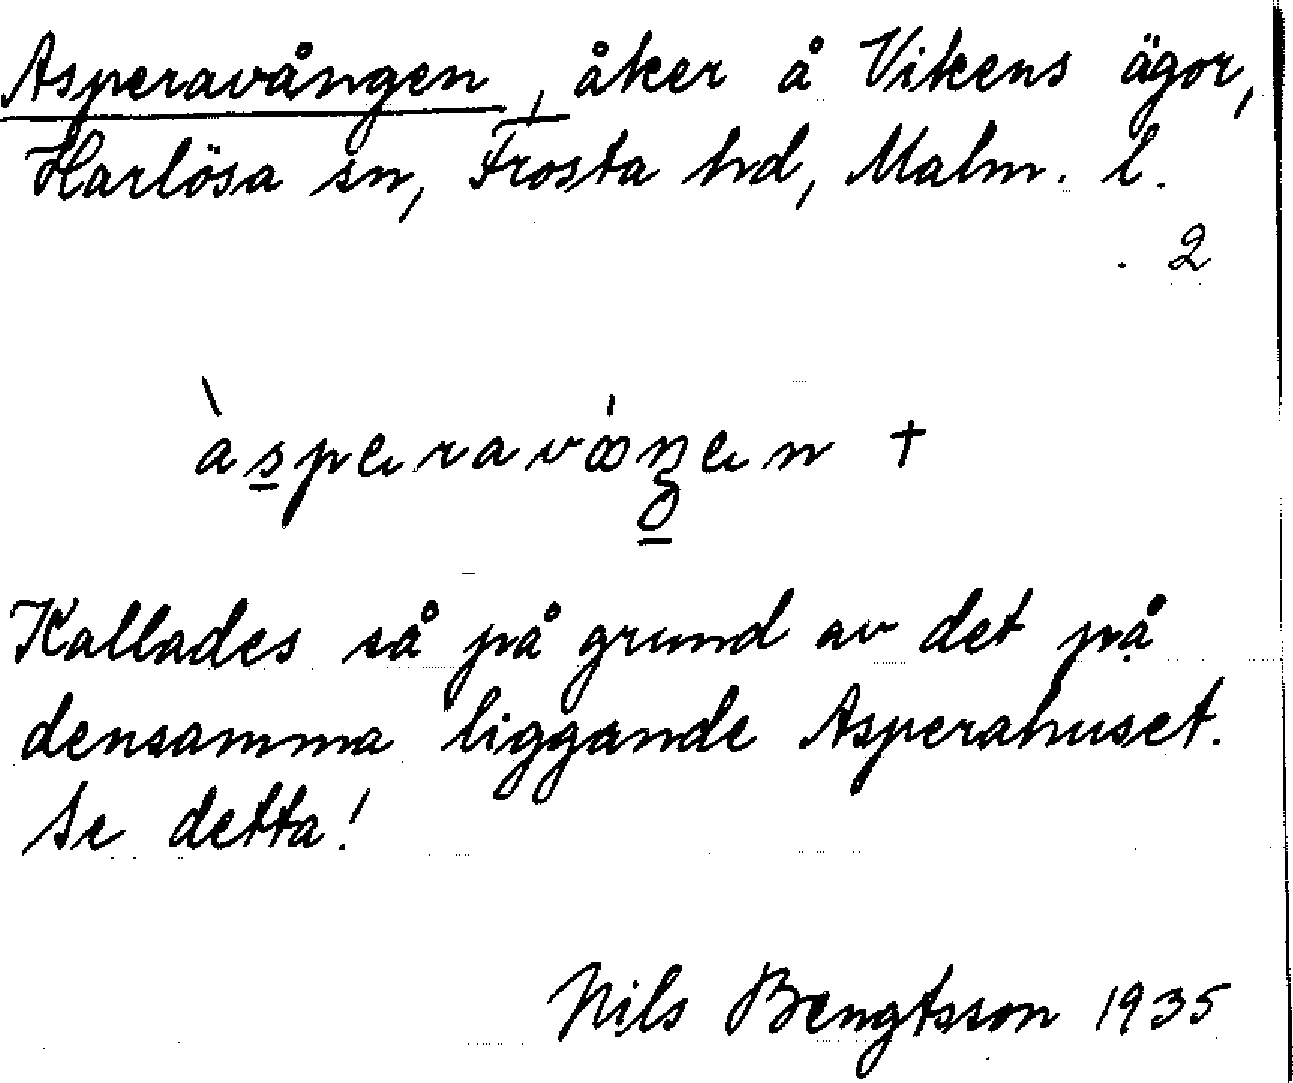 Asperavången, åker å Vikens ägor,
Harlösa sn, Frosta hd, Malm. l.
2
àsperavángen +
Kallades så på grund av det på
densamma liggande Asperahuset.
Se detta!
Nils Bengtsson 1935